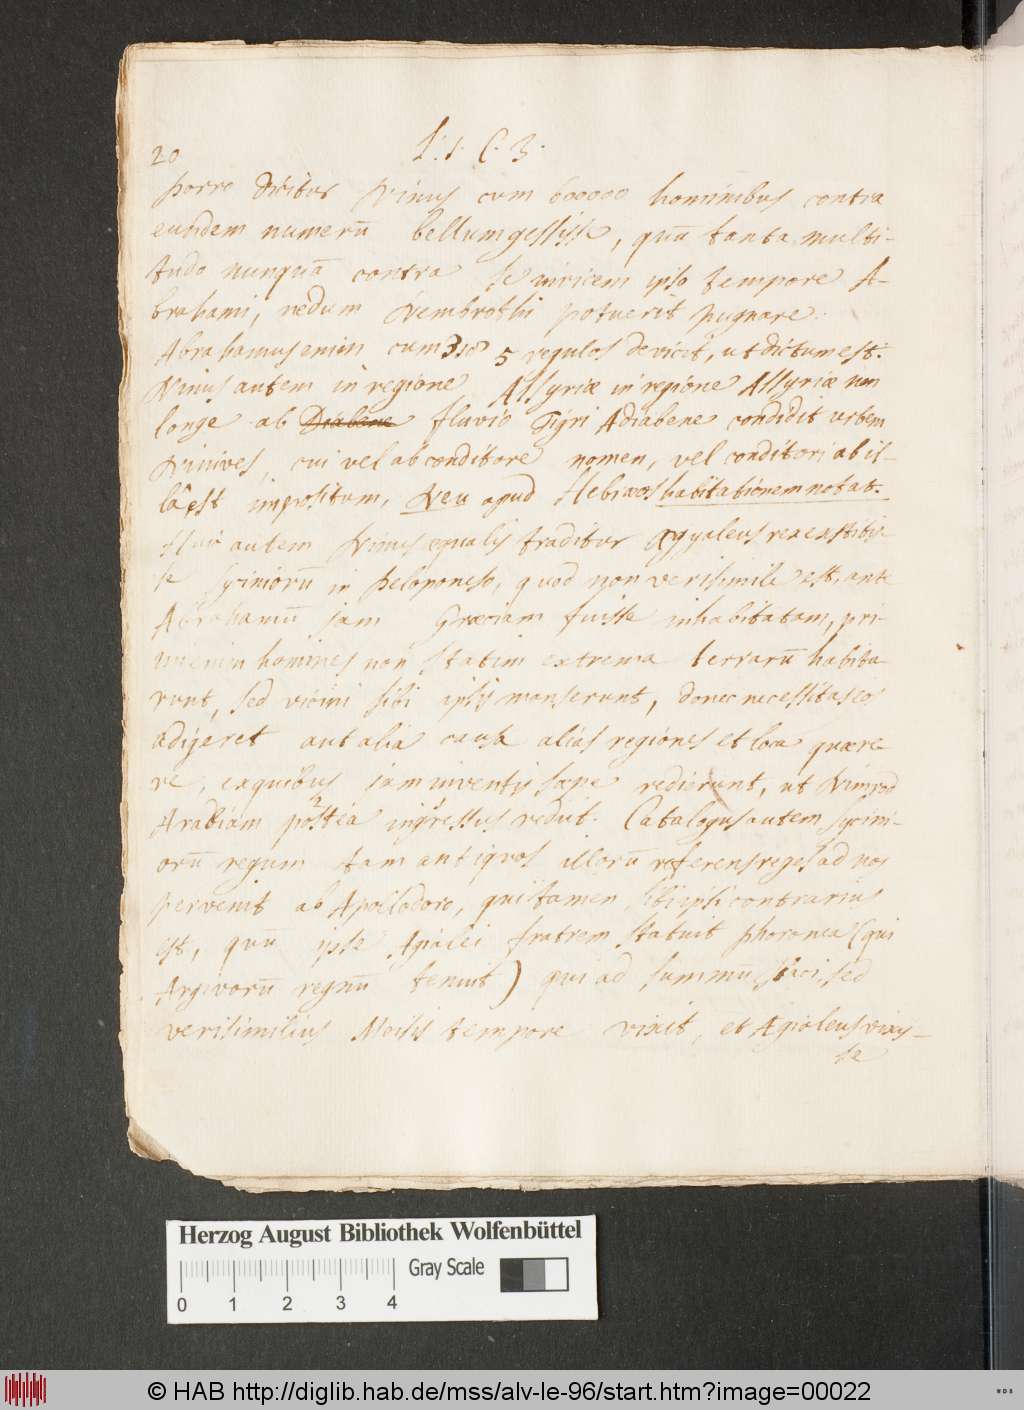 20
L: 1. C. 3.
porro dicitur Ninus cum 600000 hominibus contra
eundem numerū bellum gessisse, quū tanta multi-
tudo nunquā contra se invicem ipso tempore A-
brahami, nedum Nembrothi potuerit pugnare.
Abrahamus enim cum 318 5 regulos devicit, ut dictum est:
Ninus autem in regione Assyriæ in regione Assyriæ non
longe ab Diabene fluvio Tigri Adiabene condidit urbem
Ninives, cui vel ab conditore nomen, vel conditori ab il-
lâ est impositum, Neu apud Hebræos habitationem notat.
Huic autem Ninus equalis traditur Ægyaleus rex extitis-
se Syciniorū in Peloponeso, quod non verisimile est, ante
Abrahamū jam Græciam fuisse inhabitatam, pri-
mi enim homines non statim extrema terrarū habita
runt, sed vicini sibi ipsis manserunt, donec necessitas eos
adigeret aut alia causa alias regiones et loca quære-
re, ex quibus jam inventis sæpe redierunt, ut Nimrod
Arabiam postea ingressus rediit. Catalogus autem Sycini-
orū regum tam antiquos illorū referens reges ad nos
pervenit ab Apollodoro, qui tamen sibi ipsi contrarius
est, quū ipse Agialei fratrem statuit Phoronea (qui
Argivorū regnū tenuit) qui ad summū, sed
verisimilius Moisis tempore vixit, et Agialeus vixis-
se
Herzog August Bibliothek Wolfenbüttel
Gray Scale
0 1 2 3 4
© HAB http://diglib.hab.de/mss/alv-le-96/start.htm?image=00022